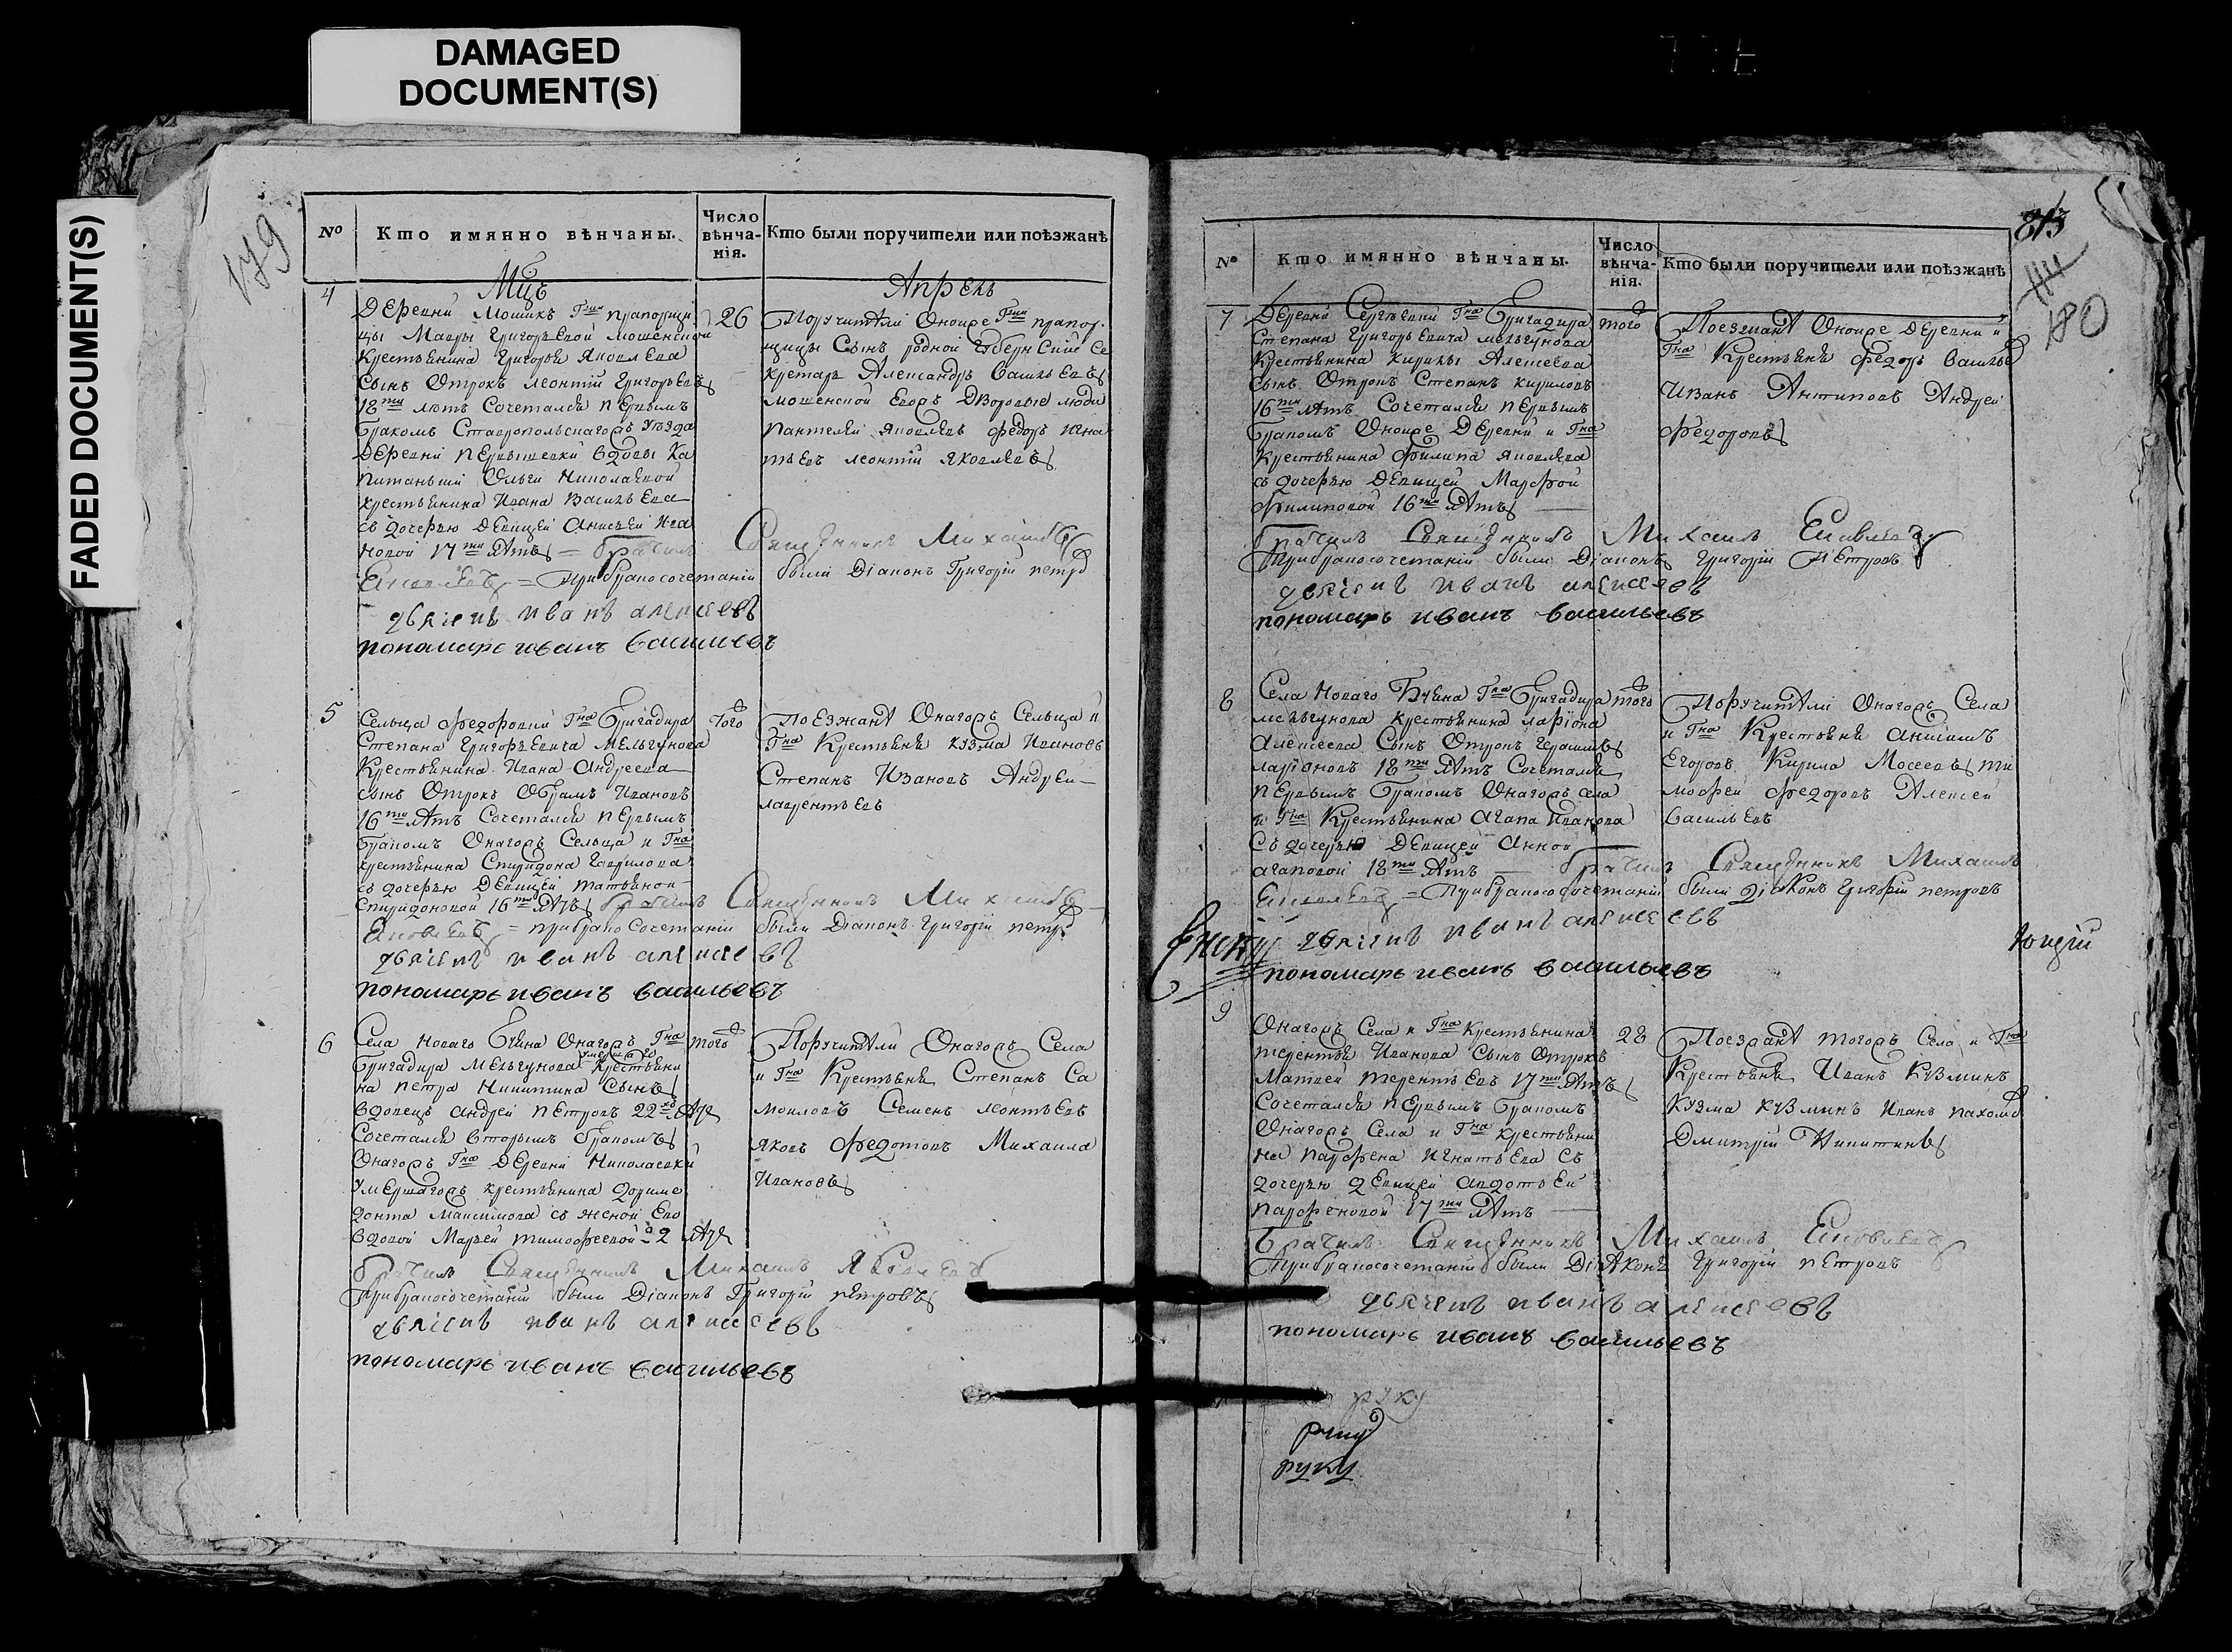 DAMAGED
DOCUMENT(S)
FADED DOCUMENT(S)
179
№
Кто имянно вѣнчаны.
Число вѣнча-нія.
Кто были поручители или поѣзжанѣ
Мцъ
Апрель
4
Деревни Мошикъ Гжи прапорщи
цы Мавры Григорьевой мошенской
Крестьянина Григорья Яковлева
Сынъ Отрокъ леонтій Григорьевъ
18ти лѣтъ Сочетался первымъ
Бракомъ Ставропольскагожъ уѣзда
Деревни вдовы Ка
питанши Ольги Николаевой
крестьянина Ивана Васильева
съ дочерью Девицей Анисьей Ива
новой 17ти лѣтъ = брачилъ Священникъ Михаилъ
Яковлевъ = прибракосочетаніи были Діаконъ Григорій петровъ
дьячекъ иванъ алексеевъ
пономарь иванъ василиевъ
26
Поручители Оноиже Гжи прапор-
щицы Сынъ родной Губернский Се
кретарь Александръ Васильевъ
мошенской Егоръ Дворовые люди
Пантелей Яковлевъ федоръ Игна
тьевъ леонтій Яковлевъ
5
Сельца федоровки Гна Бригадира
Степана Григорьевича Мельгунова
Крестьянина Ивана Андреева
сынъ Отрокъ Обрамъ Ивановъ
16ти лѣтъ Сочетался первымъ
Бракомъ Онагожъ Сельца и Гна
крестьянина Спиридона Гаврилова
съ дочерью Девицей татьяной
Спиридоновой 16ти лѣтъ брачилъ Священникъ Михаилъ
Яковлевъ = прибракосочетаніи были Діаконъ Григорій петровъ
дьячекъ иванъ алексеевъ
пономарь иванъ васильевъ
Того
Поезжанѣ Онагожъ Сельца и
Гна Крестьяне кузма Ивановъ
Степанъ Ивановъ Андрей
лаврентьевъ
6
Села Новаго Онагожъ Гна
Бригадира Мельгунова умершаго Крестьяни
на петра Никитина Сынъ
вдовецъ андрей петровъ 22хъ лѣтъ
Сочетался вторымъ бракомъ
Онагожъ Гна Деревни Николаевки
умершагожъ крестьянина
донта Максимова съ женой Его
вдовой Марьей тимофеевой 2 лѣтъ
брачилъ Священникъ Михаилъ Яковлевъ
прибракосочетаніи были Діаконъ Григорій петровъ
дьячекъ иванъ алексеевъ
пономарь иванъ васильевъ
того
Поручители Онагожъ Села
и Гна Крестьяне Степанъ Са
мойловъ Семенъ леонтьевъ
Яковъ федотовъ Михаила
Ивановъ
180
№
Кто имянно вѣнчаны.
Число вѣнча-нія.
Кто были поручители или поѣзжанѣ
7
Деревни Сергѣевки Гна Бригадира
Степана Григорьевича мельгунова
Крестьянина кирилы Алексеева
сынъ Отрокъ Степанъ кириловъ
16ти лѣтъ Сочетался первымъ
Бракомъ Оноиже Деревни и Гна
крестьянина филипа Яковлева
съ дочерью Девицей Марфой
филиповой 16ти лѣтъ
брачилъ Священникъ Михаилъ Яковлевъ
Прибракосочетаніи были Діаконъ Григорій петровъ
дьячекъ иванъ алексеевъ
пономарь иванъ васильевъ
того
Поезжанѣ Оноиже Деревни и
Гна Крестьяне федоръ Васильевъ
Иванъ Антиповъ Андрей
федоровъ
8
Села Новаго Гна Бригадира
мельгунова крестьянина ларіона
Алексеева Сынъ Отрокъ
ларіоновъ 18ти лѣтъ Сочетался
первымъ бракомъ Онагожъ села
и Гна Крестьянина Агапа Иванова
съ дочерью Девицей Анной
агаповой 18ти лѣтъ — брачилъ Священникъ Михаилъ
Яковлевъ = прибракосочетаніи были діаконъ григорій петровъ
дьячекъ иванъ алексеевъ
пономарь иванъ васильевъ
того
Поручители Онагожъ Села
и Гна Крестьяне
Егоровъ Кирила Мосеевъ ти
мофей федоровъ Алексей
васильевъ
9
Онагожъ Села и Гна Крестьянина
терентья Иванова Сынъ Отрокъ
Матвей терентьевъ 17ти лѣтъ
Сочетался первымъ Бракомъ
Онагожъ Села и Гна крестьяни
на парфена Игнатьева съ
дочерью девицей авдотьей
парфеновой 17ти лѣтъ
Брачилъ Священникъ Михаилъ Яковлевъ
Прибракосочетаніи были Діаконъ Григорій петровъ
дьячекъ иванъ алексеевъ
пономарь иванъ васильевъ
28
Поезжанѣ тогожъ Села и Гна
Крестьяне Иванъ Кузминъ
Кузма кузминъ Иванъ пахомовъ
Дмитрій Никитинъ
руку
руку